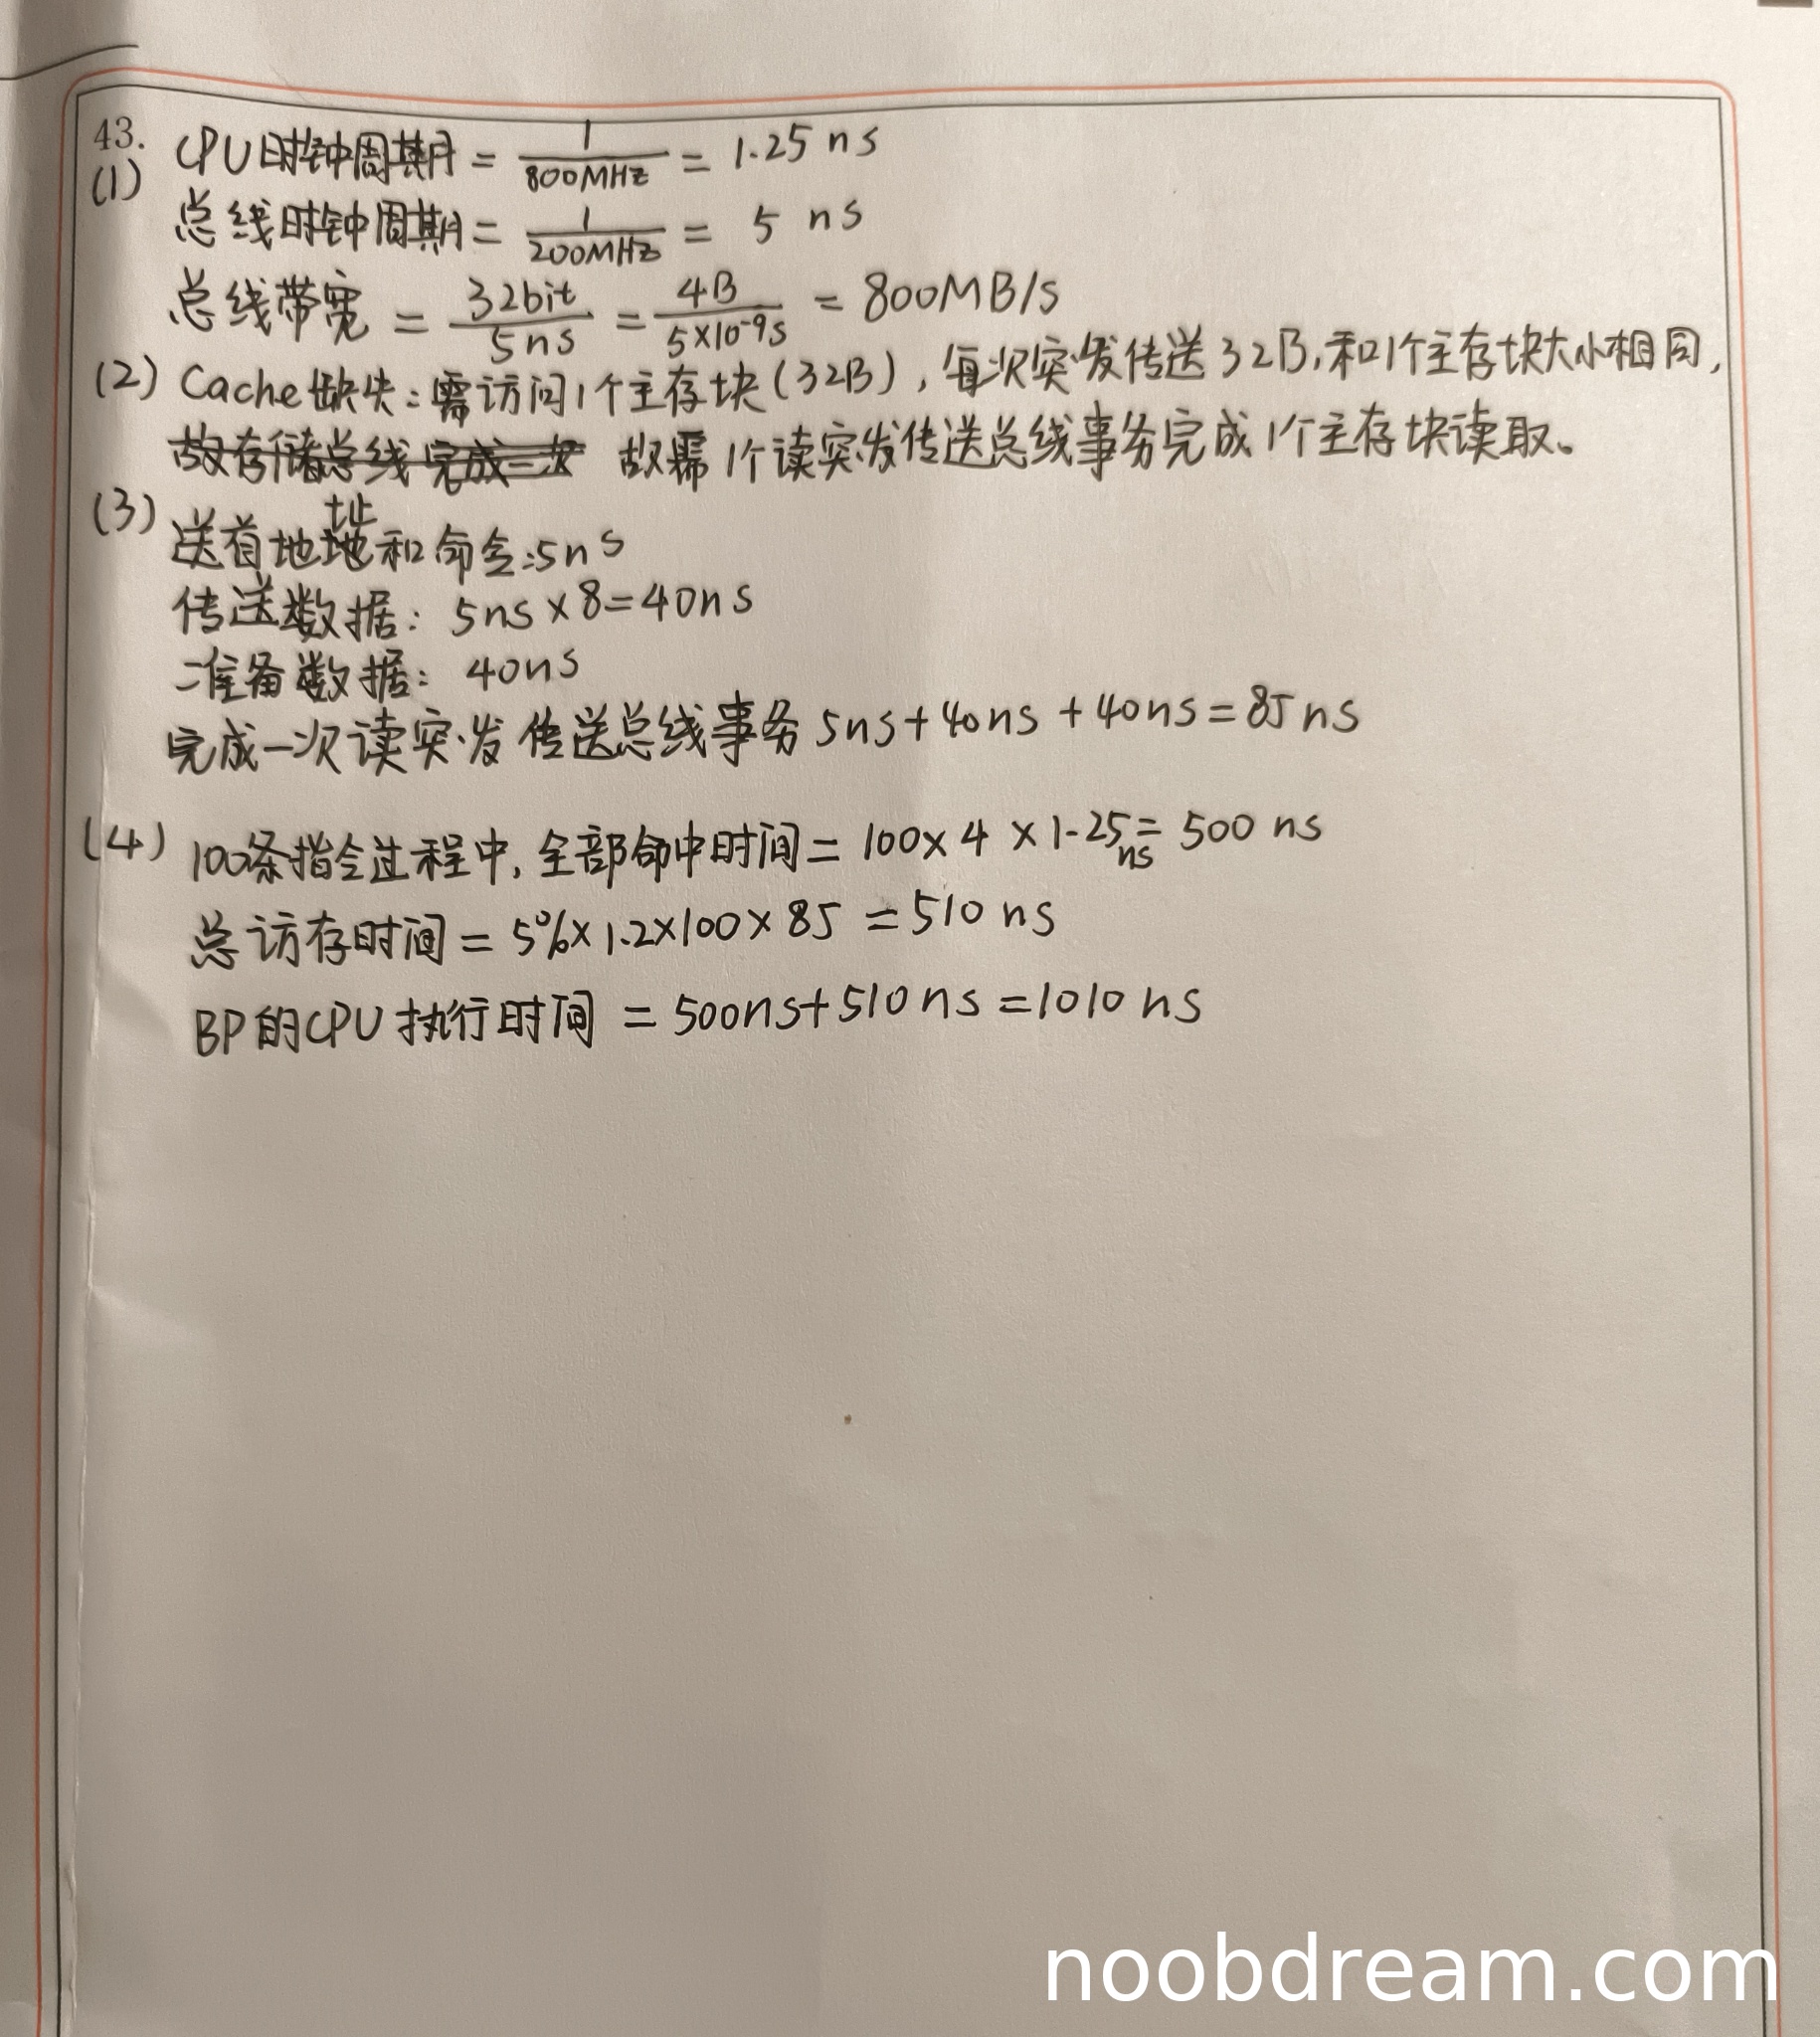 43.
(1) CPU时钟周期 = 1/800MHz = 1.25 ns
总线时钟周期 = 1/200MHz = 5 ns
总线带宽 = 32bit/5ns = 4B/5×10⁻⁹s = 800MB/s
(2) Cache缺失:需访问1个主存块(32B),每次突发传送32B,和1个主存块大小相同,
故存储总线完成一次 故需1个读突发传送总线事务完成1个主存块读取。
(3) 送首地址和命令:5ns
传送数据: 5ns×8=40ns
准备数据: 40ns
完成一次读突发传送总线事务 5ns+40ns+40ns=85ns
(4) 100条指令过程中,全部命中时间= 100×4×1.25ns= 500 ns
总访存时间= 5%×1.2×100×85 =510 ns
BP的CPU执行时间 = 500ns+510ns =1010 ns
noobdream.com